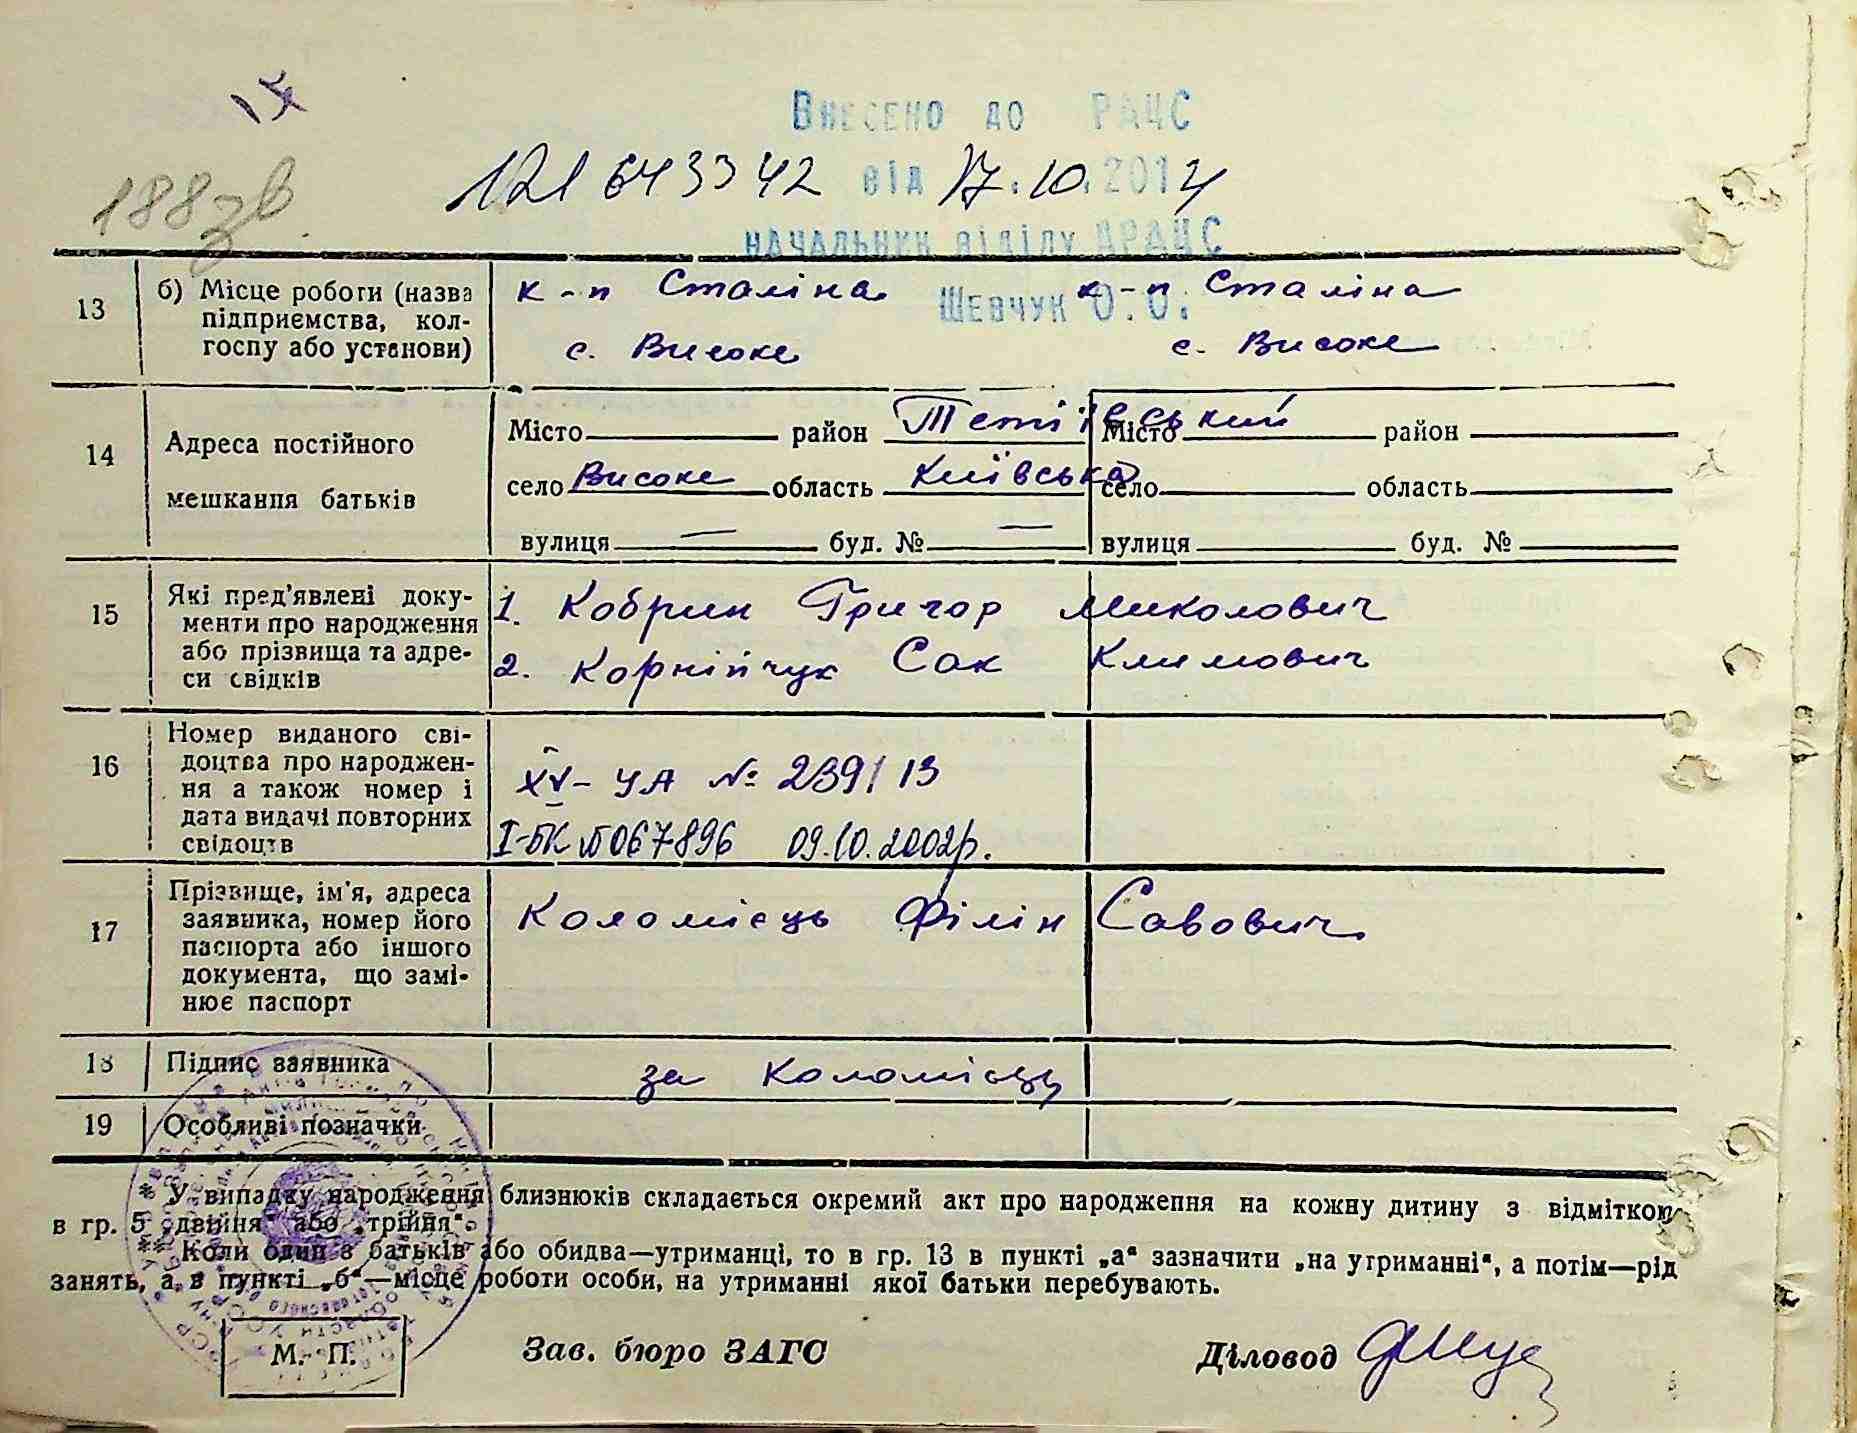 188зв
Внесено до РАЦС
121 643342 від 17.10.2014
начальник відділу ДРАЦС
Шевчук О.О.
13 б) Місце роботи (назва підприємства, кол-
госпу або установи)
к-п Сталіна к-п Сталіна
с. Високе с. Високе
14 Адреса постійного
мешкання батьків
Місто район Тетіївський Місто район
село Високе область Київська село область
вулиця — буд. № — вулиця буд. №
15 Які пред'явлені доку-
менти про народження
або прізвища та адре-
си свідків
1. Кобрин Григор Миколович
2. Корнійчук Сак Климович
16 Номер виданого сві-
доцтва про народжен-
ня а також номер і
дата видачі повторних
свідоцтв
XV-УА № 239113
I-БК №067896 09.10.2002р.
17 Прізвище, ім'я, адреса
заявника, номер його
паспорта або іншого
документа, що замі-
нює паспорт
Коломієць Філін Савович
18 Підпис заявника за Коломієць
19 Особливі позначки
* У випадку народження близнюків складається окремий акт про народження на кожну дитину з відміткою
в гр. 5 „двійня" або „трійня".
* Коли один з батьків або обидва—утриманці, то в гр. 13 в пункті „а" зазначити „на утриманні", а потім—рід
занять, а в пункті „б"—місце роботи особи, на утриманні якої батьки перебувають.
М. П. Зав. бюро ЗАГС Діловод